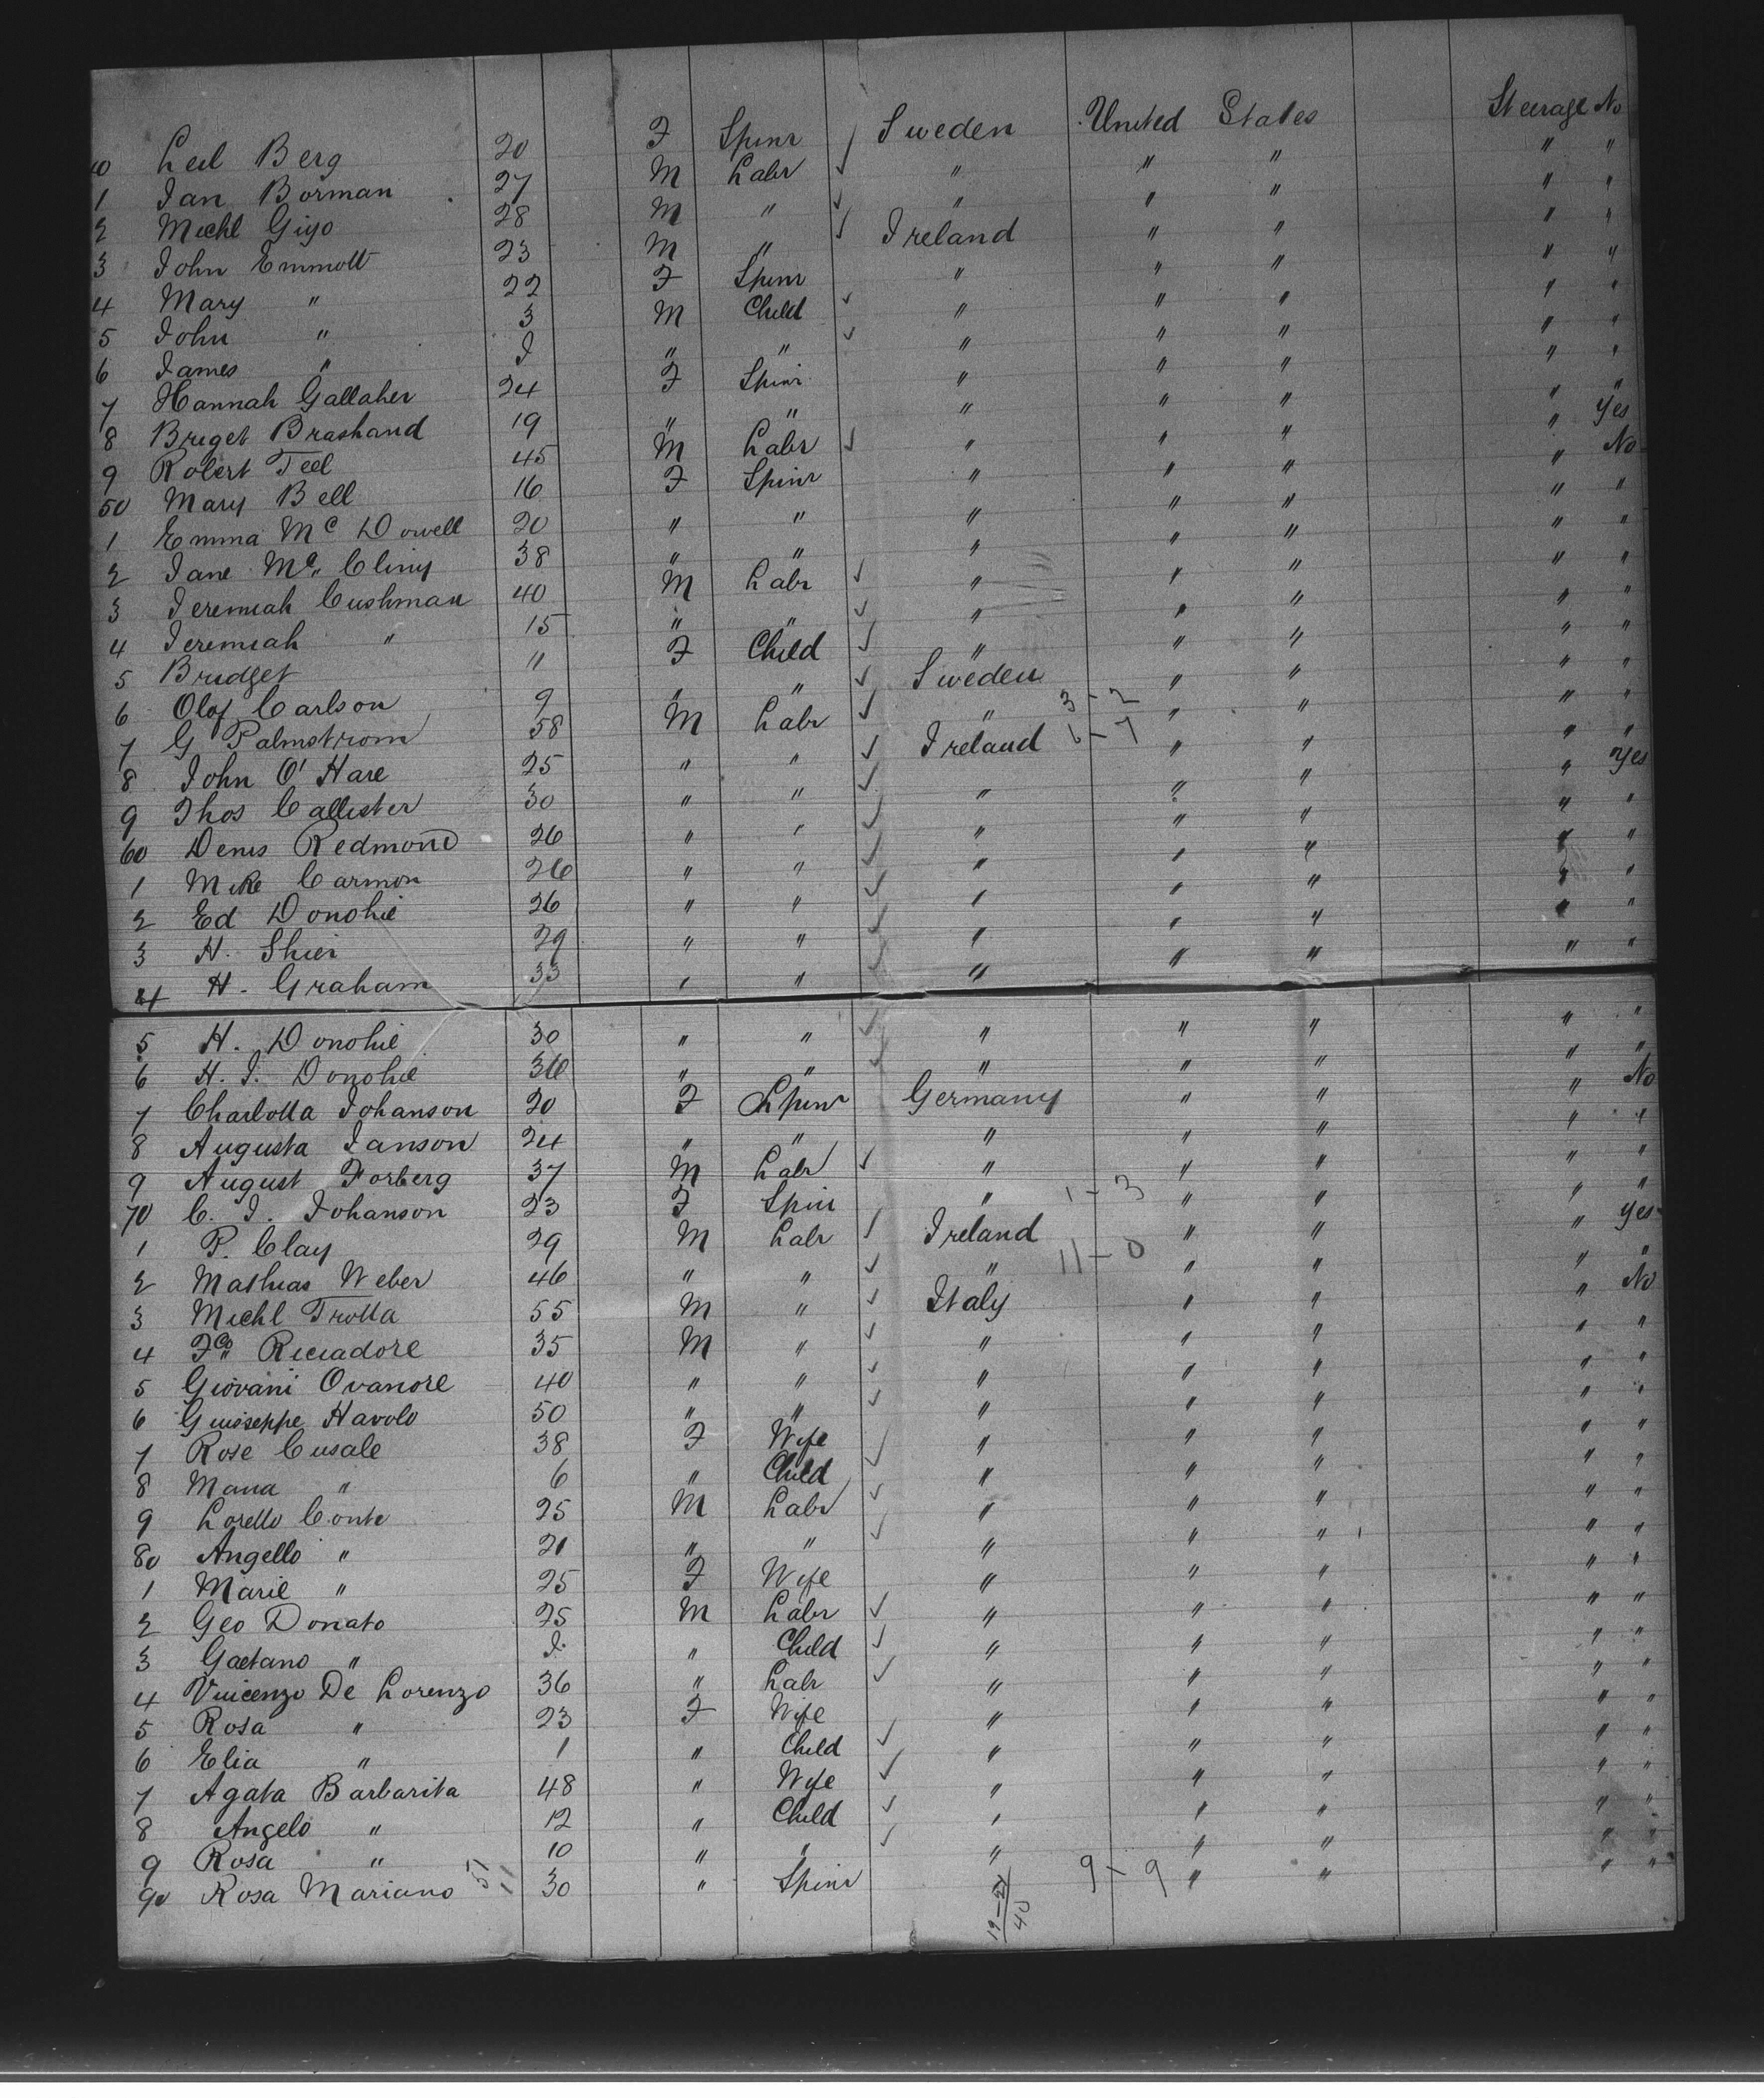 40 Leil Berg 20 F Spinr Sweden United States Steerage No
1 Jan Borman 27 M Labr " " " " "
2 Michl Giyo 28 M " " " " " "
3 John Emmott 23 M " Ireland " " " "
4 Mary " 22 F Spinr " " " " "
5 John " 3 M Child " " " " "
6 James " I " " " " " " "
7 Hannah Gallaher 24 F Spinr " " " " "
8 Briget Brashand 19 " " " " " " Yes
9 Robert Teel 45 M Labr " " " " No
50 Mary Bell 16 F Spinr " " " " "
1 Emma Mc Dowell 20 " " " " " " "
2 Jane Mc Cliny 38 " " " " " " "
3 Jeremiah Cushman 40 M Labr " " " " "
4 Jeremiah " 15 " " " " " " "
5 Bridget 11 F Child " " " " "
6 Olof Carlson 9 " " Sweden " " " "
7 G Palmstrom 58 M Labr " " " " "
8 John O'Hare 25 " " Ireland " " " Yes
9 Thos Callister 30 " " " " " " "
60 Denis Redmond 26 " " " " " " "
1 Mike Carmon 26 " " " " " " "
2 Ed Donohie 26 " " " " " " "
3 H. Shier 29 " " " " " " "
4 H. Graham 33 " " " " " " "
5 H. Donohie 30 " " " " " " "
6 H. J. Donohie 30 " " " " " " No
7 Charlotta Johanson 20 F Spinr Germany " " " "
8 Augusta Janson 24 " " " " " " "
9 August Forberg 37 M Labr " " " " "
70 C. J. Johanson 23 F Spin " 1-3 " " " Yes
1 P. Clay 29 M Labr Ireland " " " "
2 Mathias Weber 46 " " " 11-0 " " " No
3 Michl Trotta 55 M " Italy " " " "
4 Fco Ricciadore 35 M " " " " " "
5 Giovani Ovanore 40 " " " " " " "
6 Guisseppe Havolo 50 " " " " " " "
7 Rose Cusale 38 F Wife " " " " "
8 Maria " 6 " Child " " " " "
9 Lorello Conte 25 M Labr " " " " "
80 Angello " 21 " " " " " " "
1 Marie " 25 F Wife " " " " "
2 Geo Donato 25 M Labr " " " " "
3 Gaetano " I. " Child " " " " "
4 Vincenzo De Lorenzo 36 " Labr " " " " "
5 Rosa " 23 F Wife " " " " "
6 Elia " 1 " Child " " " " "
7 Agata Barbarita 48 " Wife " " " " "
8 Angelo " 12 " Child " " " " "
9 Rosa " 10 " " " " " " "
90 Rosa Mariano 30 " Spinr 9-9 " " " "